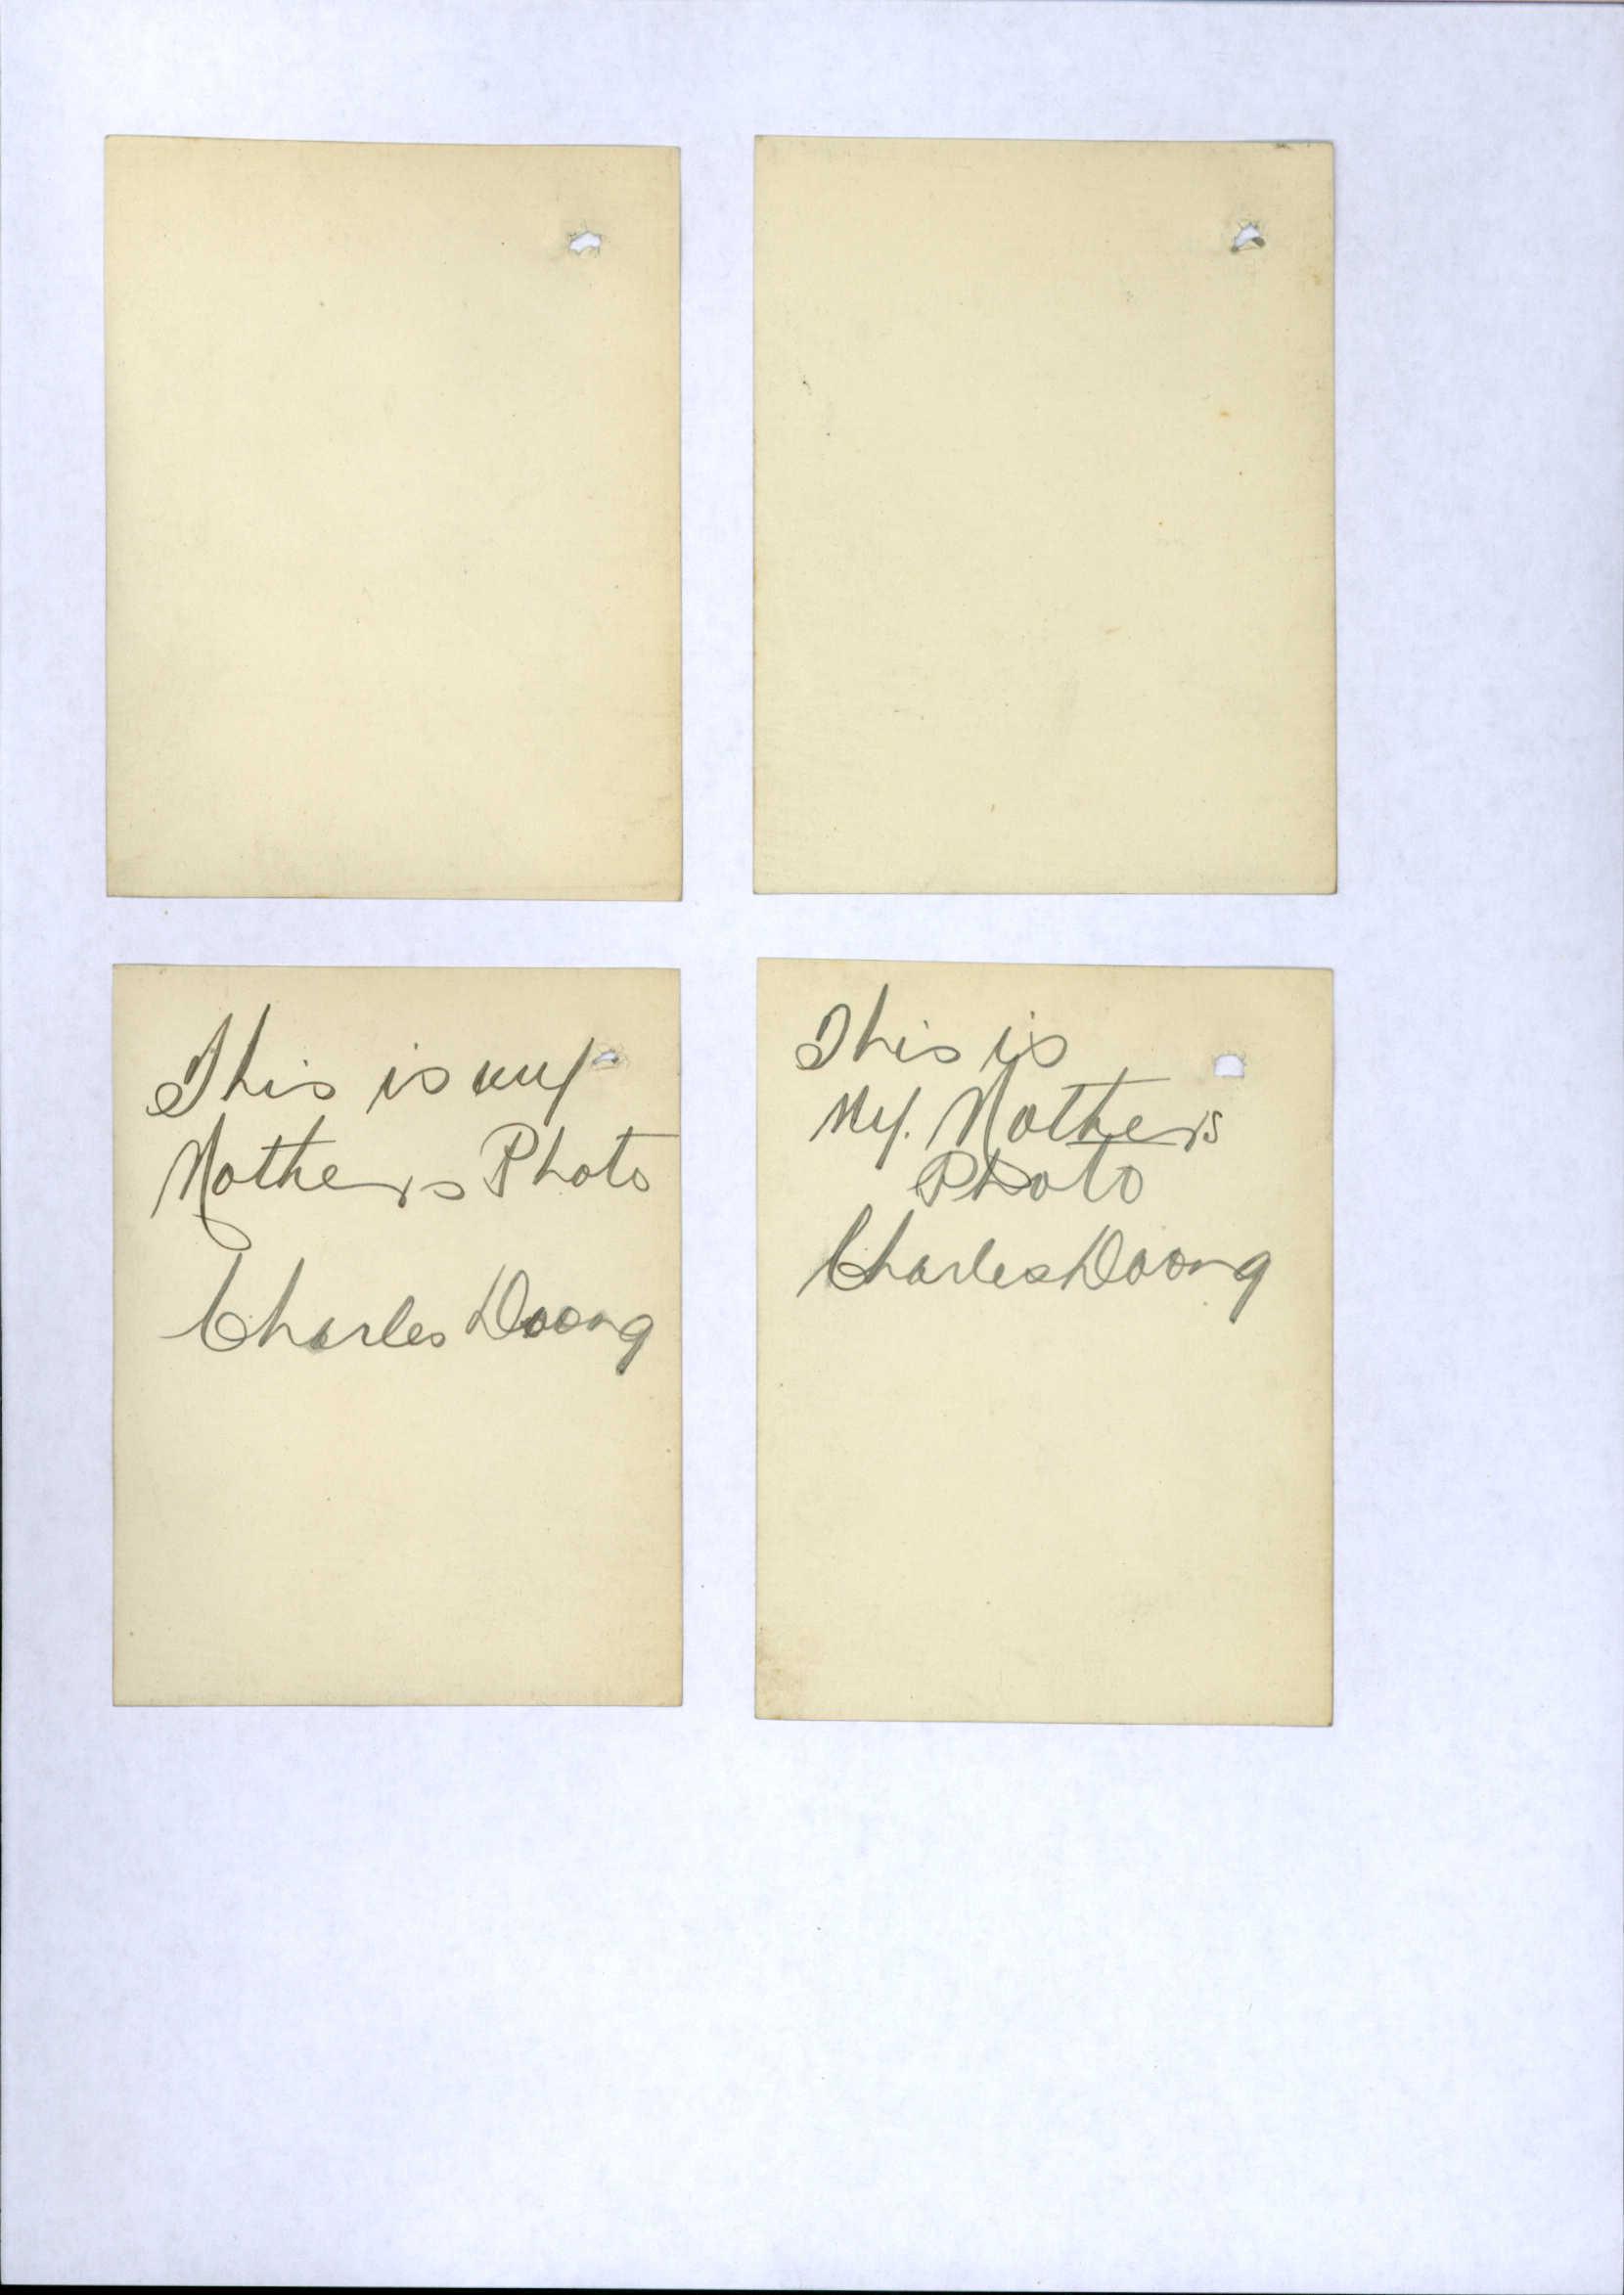 This is my
Mothers Photo
Charles Doong
This is
My. Mothers
Photo
Charles Doong